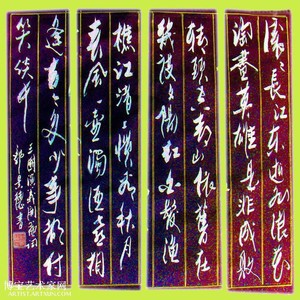 滚滚長江東逝水浪花
淘盡英雄是非成敗
轉頭空青山依舊在
幾度夕陽紅白髮漁
樵江渚上慣看秋月
春風一壺濁酒喜相
逢古今多少事都付
笑談中
三國演義開篇詞
書
博宝艺术家网
ARTIST.ARTXUN.COM